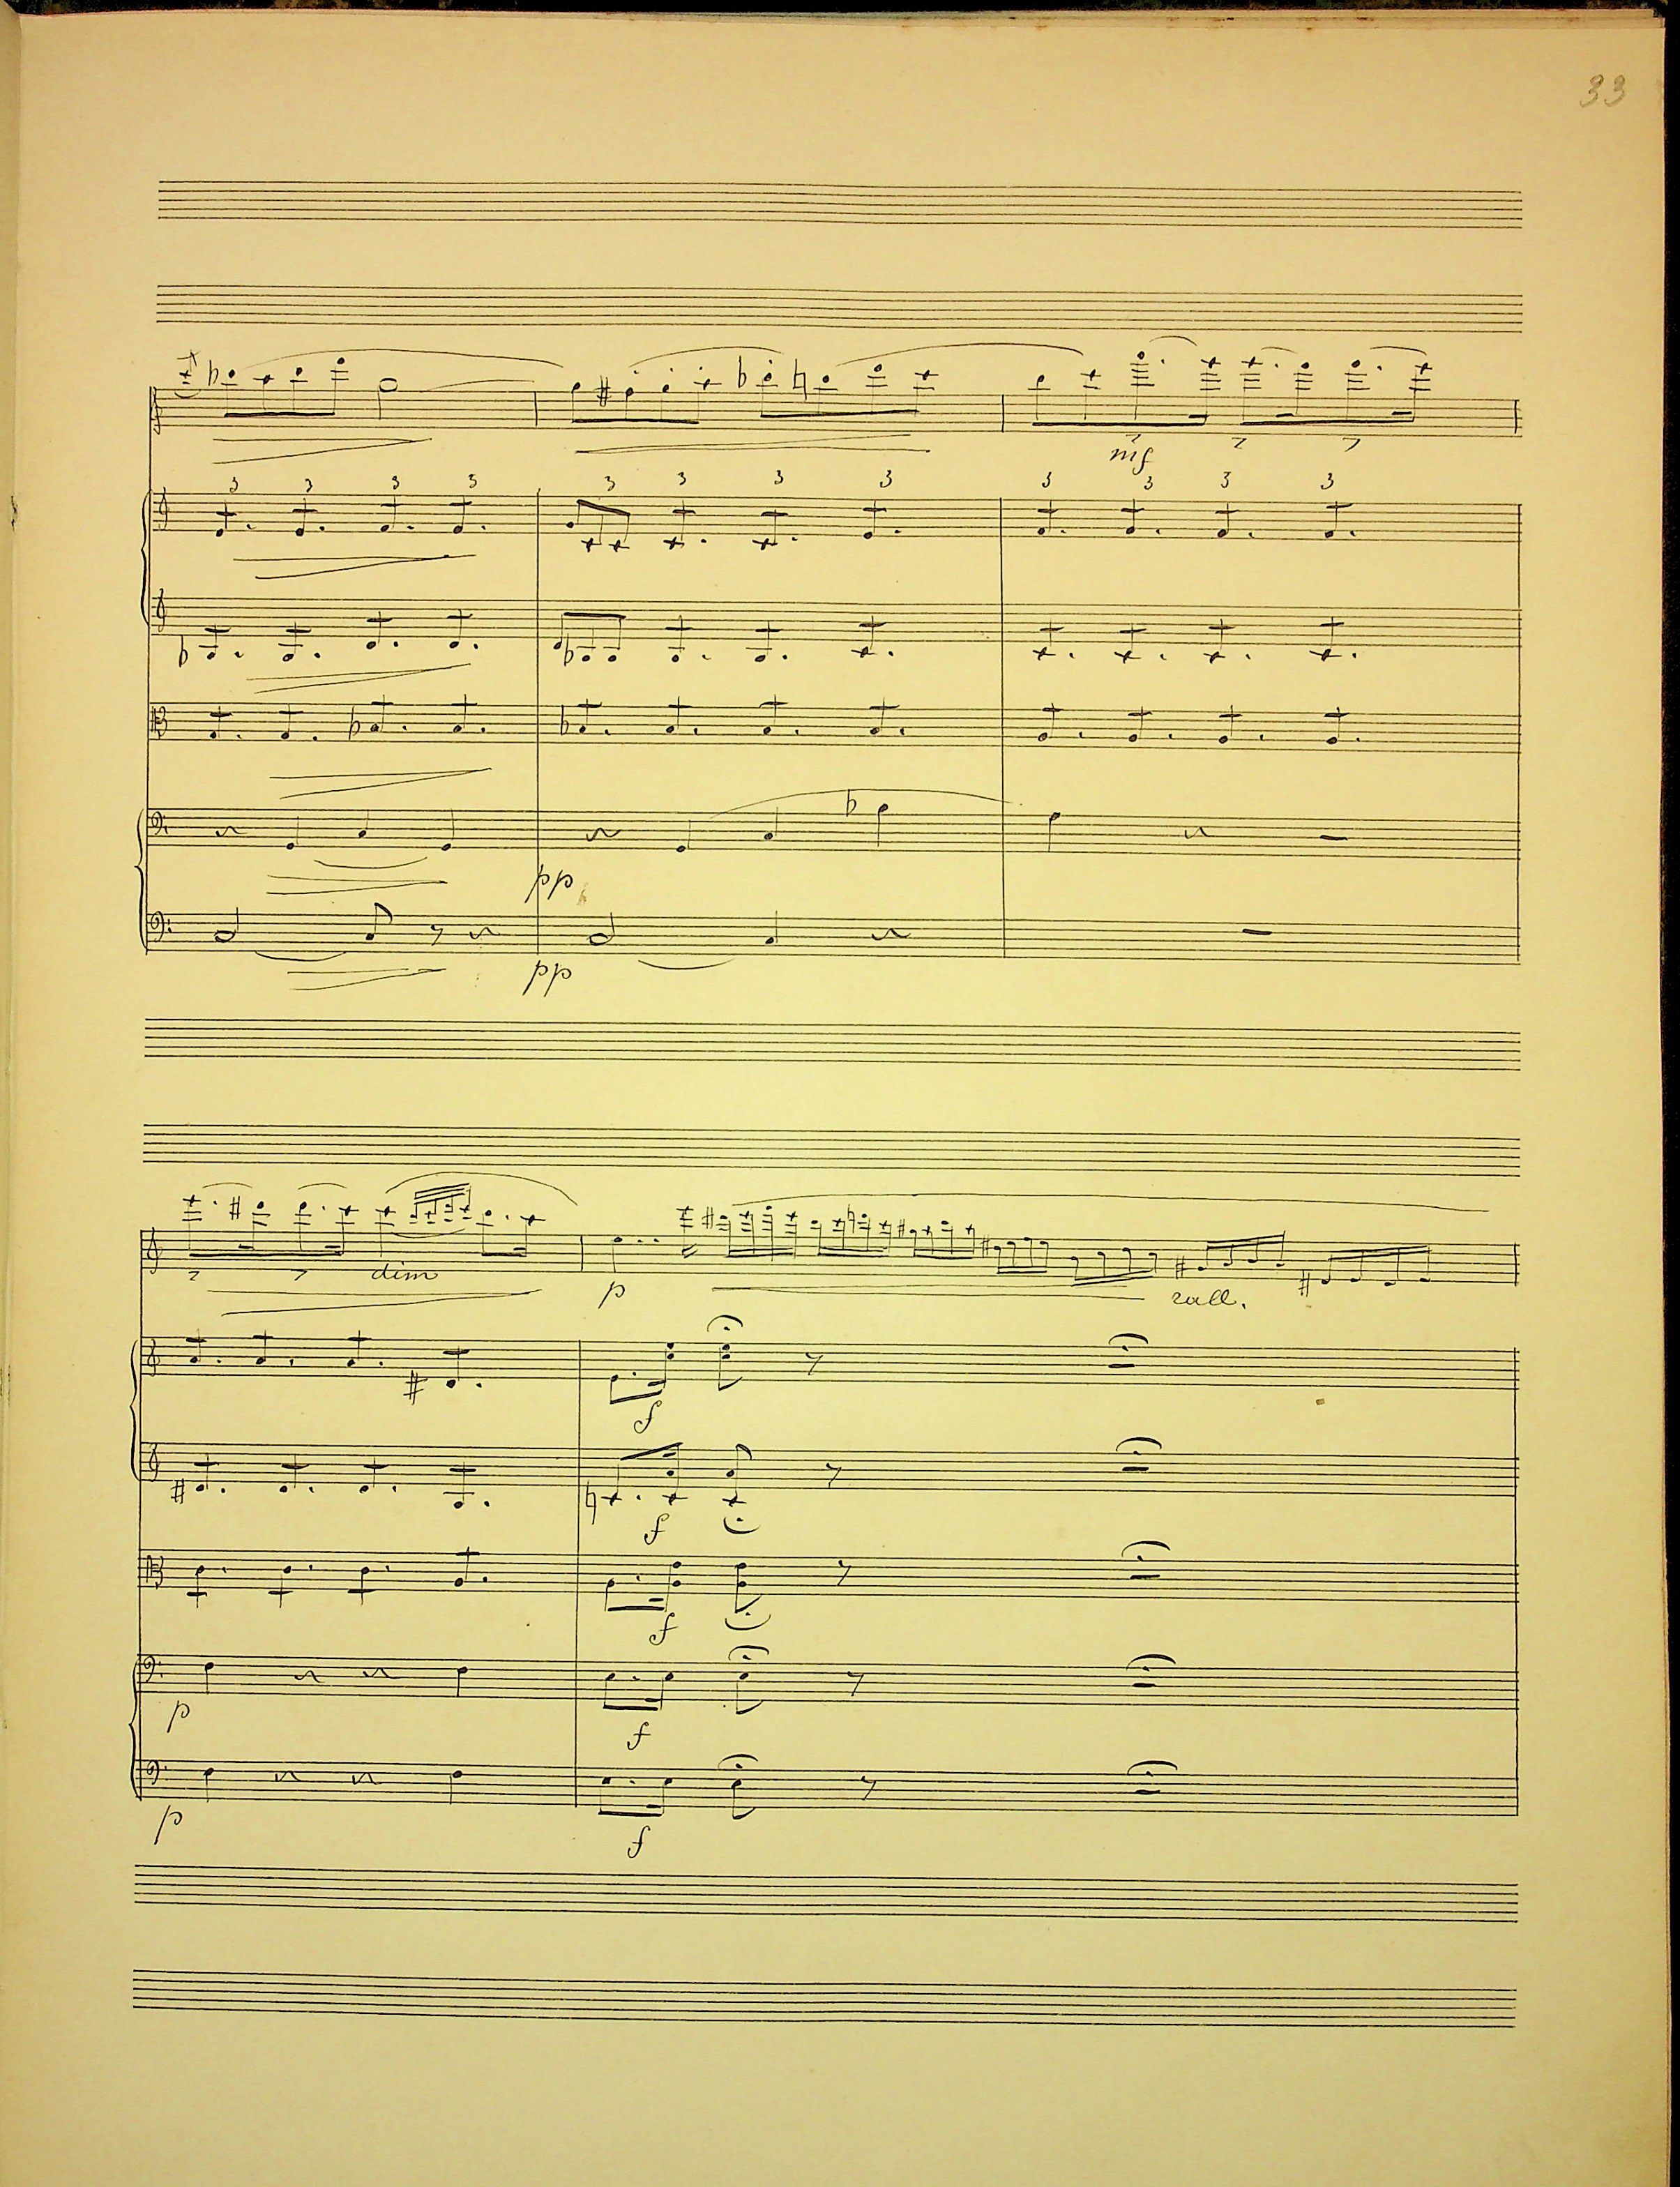 33
mf
3 3 3 3 3 3 3 3 3 3 3 3
pp
pp
dim
p
rall.
f
f
f
p
f
p
f